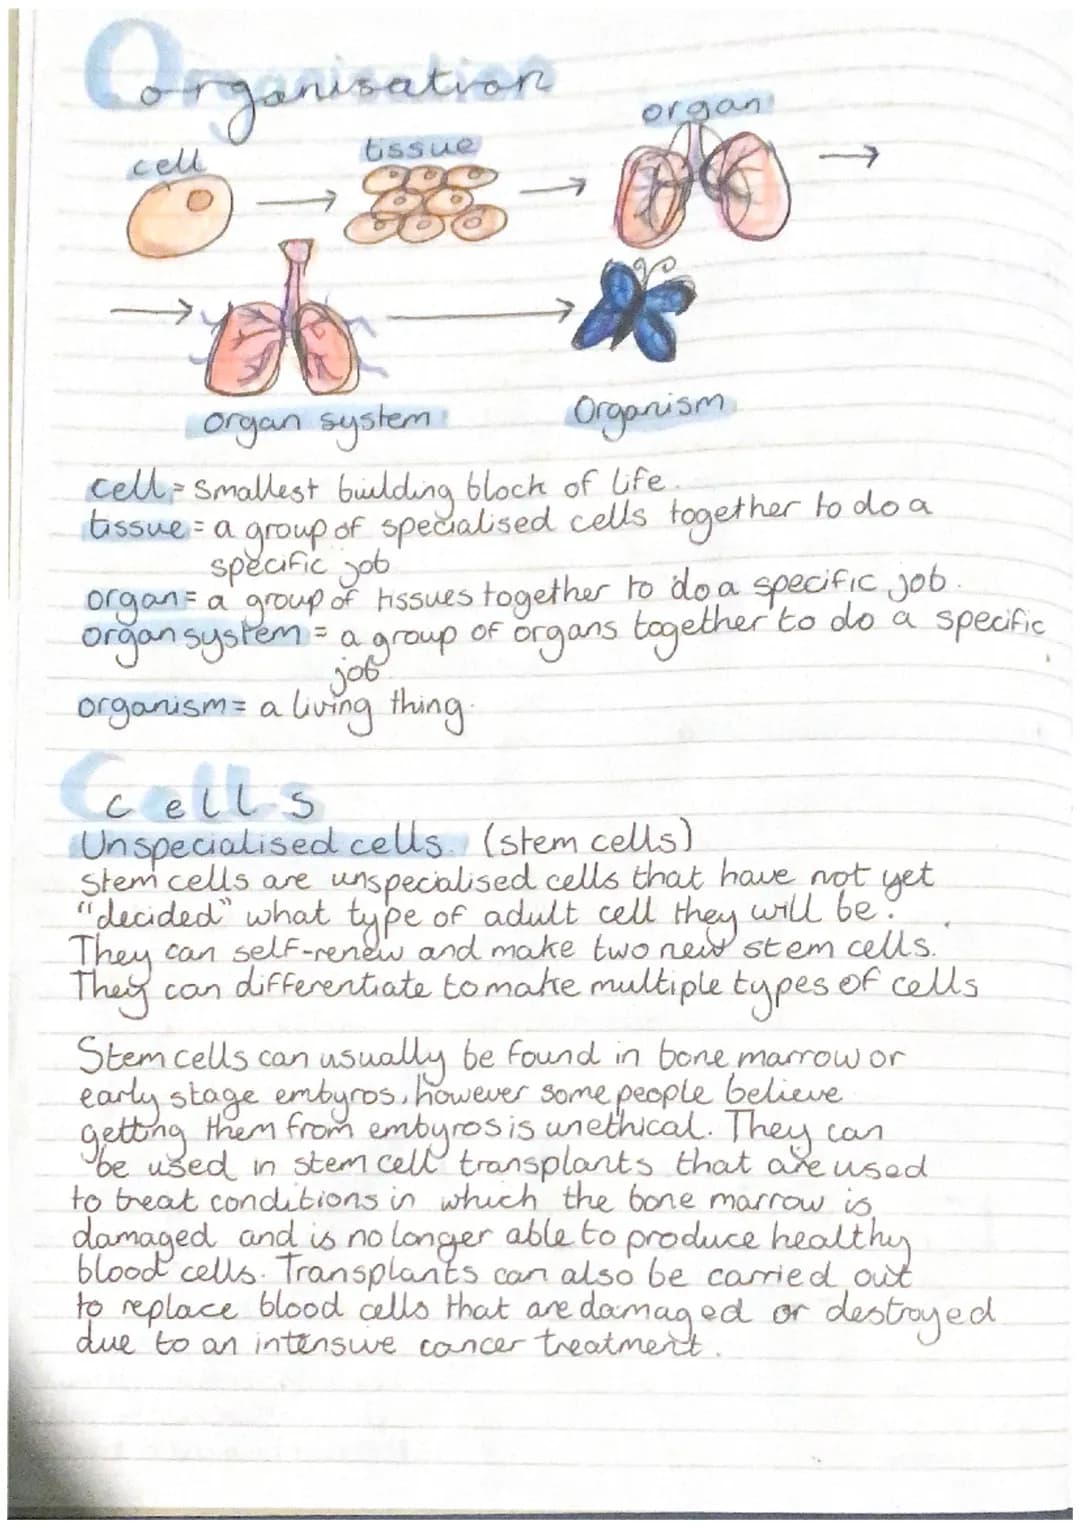 Organisation
cell
tissue
organ
organ system
Organism
cell = smallest building block of life.
tissue = a group of specialised cells together to do a
specific job
organ = a group of tissues together to do a specific job.
organ system = a group of organs together to do a specific
job
organism = a living thing.
Cells
Unspecialised cells. (stem cells)
stem cells are unspecialised cells that have not yet
"decided" what type of adult cell they will be.
They can self-renew and make two new stem cells.
They can differentiate to make multiple types of cells
Stem cells can usually be found in bone marrow or
early stage embyros, however some people believe
getting them from embyros is unethical. They can
be used in stem cell transplants that are used
to treat conditions in which the bone marrow is
damaged and is no longer able to produce healthy
blood cells. Transplants can also be carried out
to replace blood cells that are damaged or destroyed
due to an intensive cancer treatment.